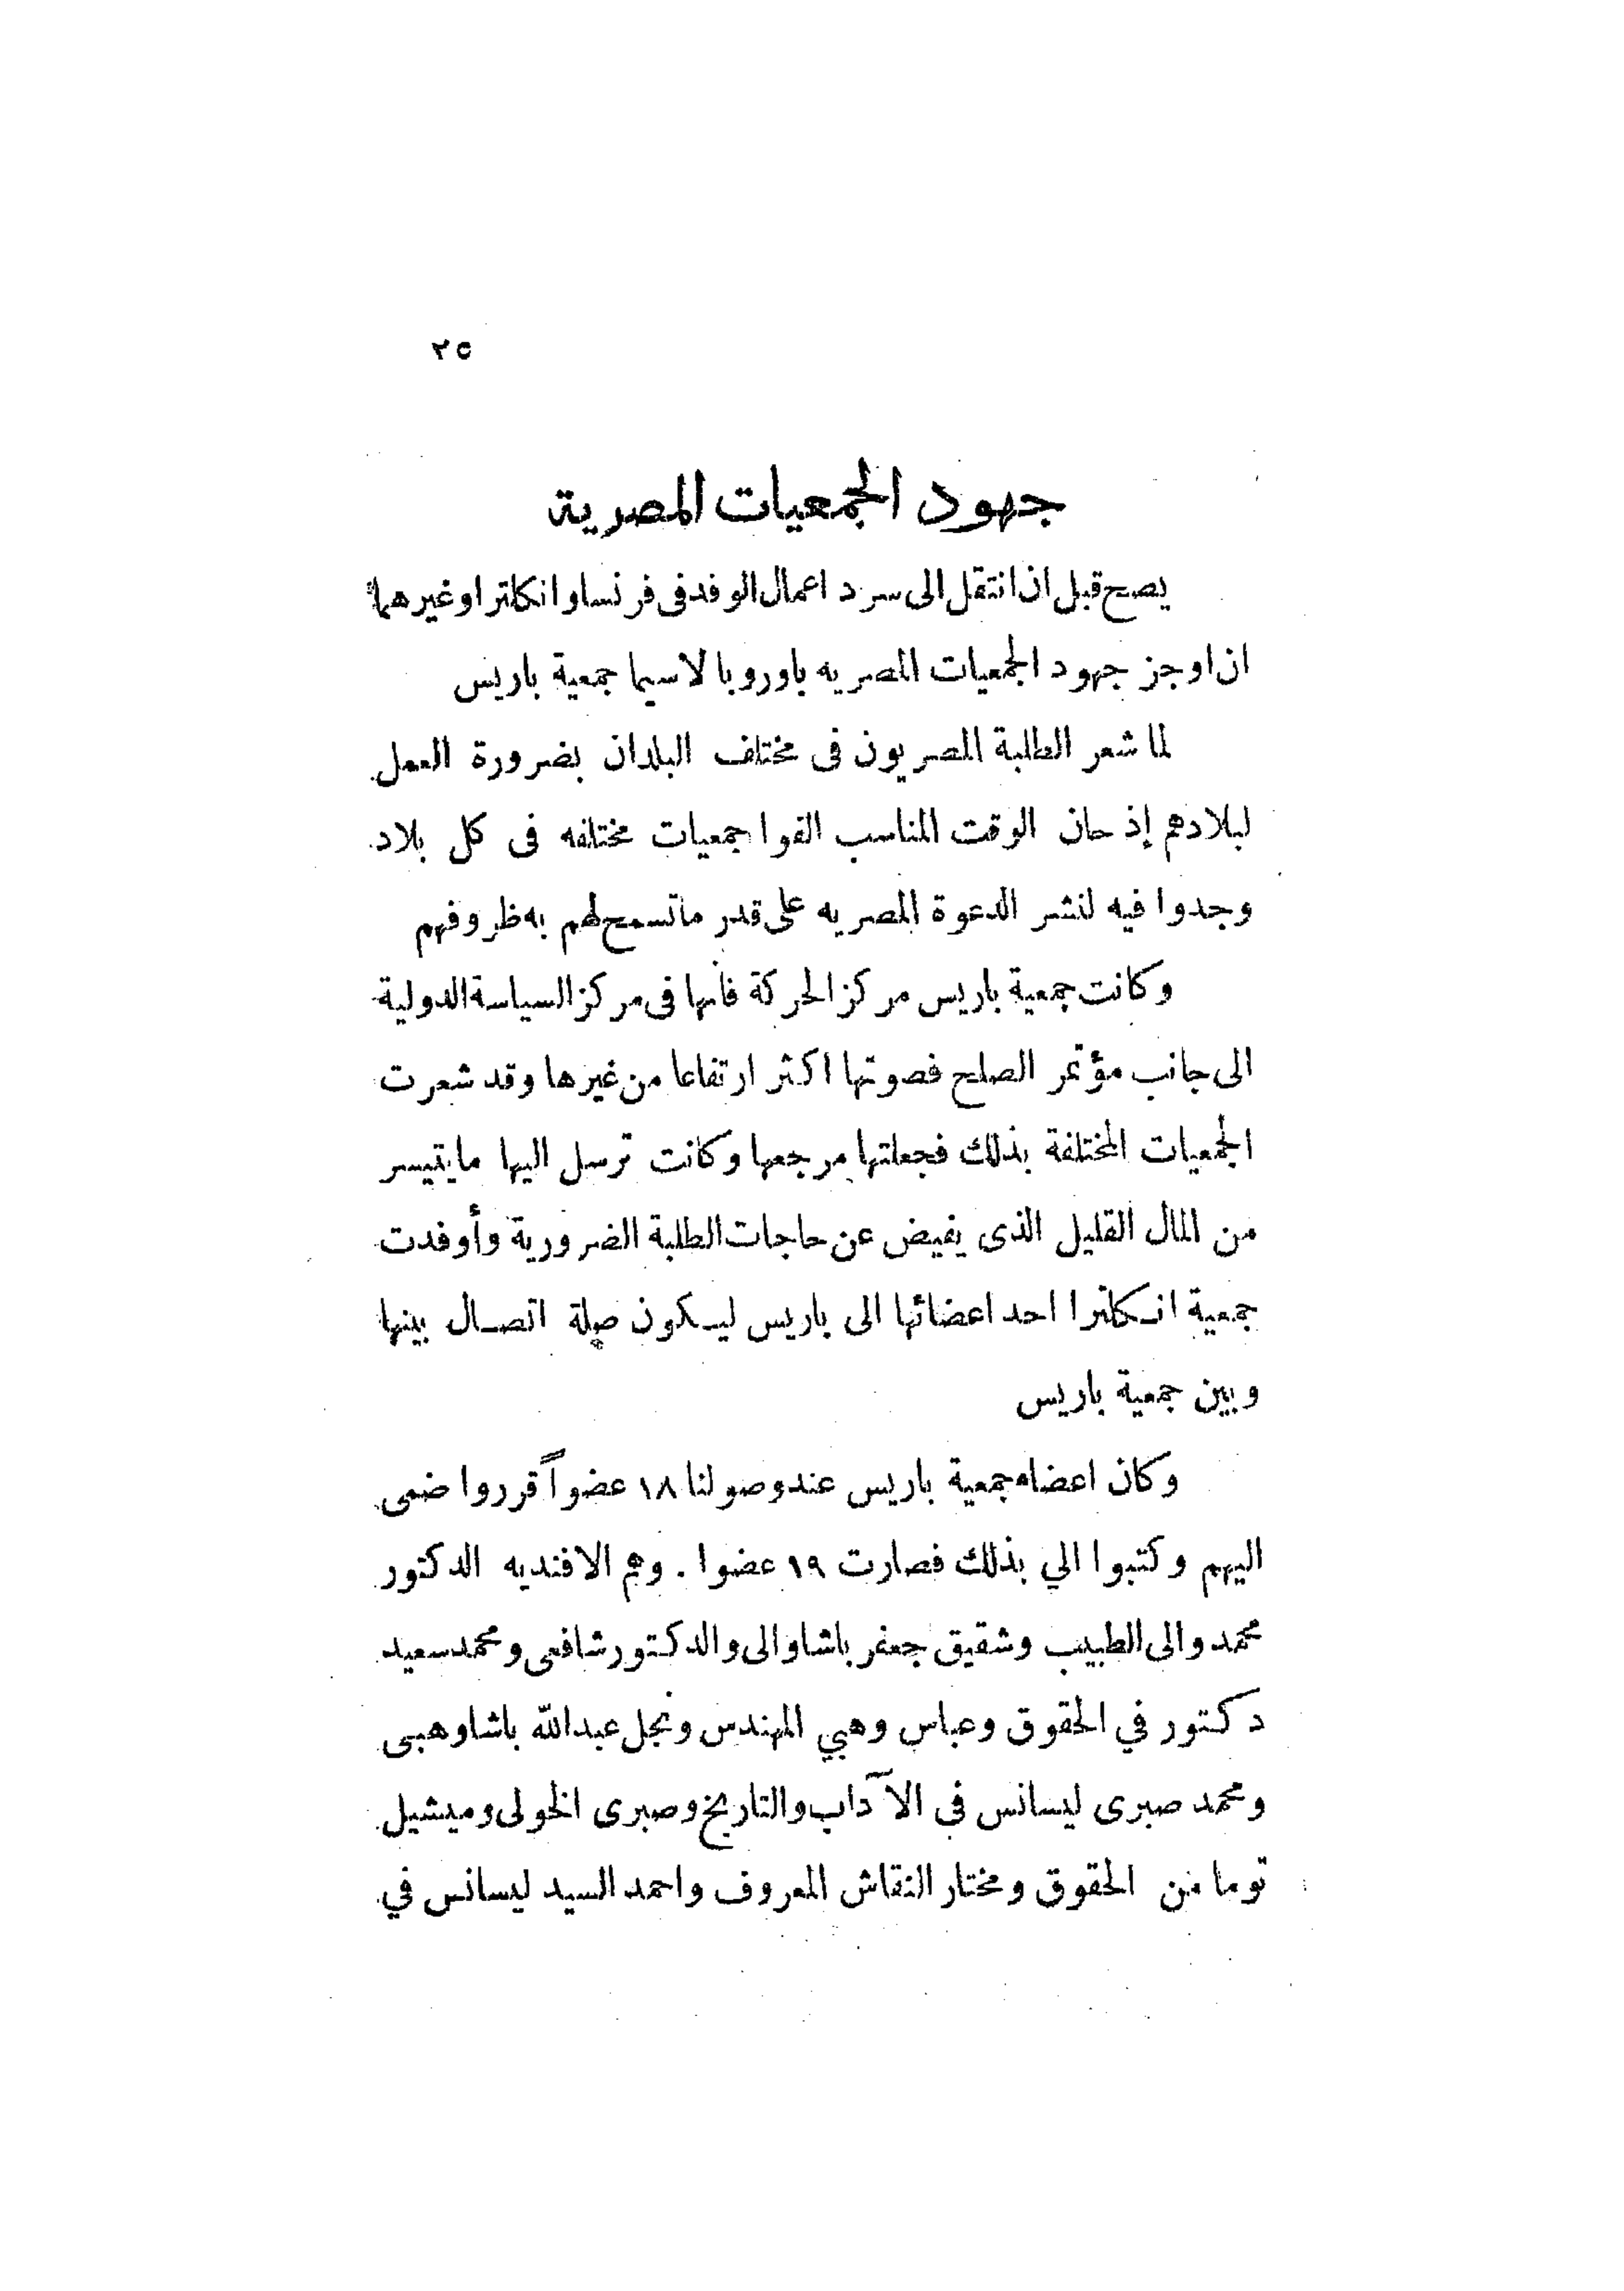 ٢٥
جهود الجمعيات المصرية
يصح قبل ان انتقل الى سرد اعمال الوفد فى فرنسا وانكلترا وغيرهما
ان اوجز جهود الجمعيات المصريه باوروبا لاسيما جمعية باريس
لما شعر الطلبة المصريون فى مختلف البلدان بضرورة العمل
لبلادهم إذ حان الوقت المناسب الفوا جمعيات مختلفه فى كل بلاد
وجدوا فيه لنشر الدعوة المصريه على قدر ماتسمح لهم به ظروفهم
وكانت جمعية باريس مركز الحركة فأنها فى مركز السياسة الدولية
الى جانب مؤتمر الصلح فصوتها اكثر ارتفاعا من غيرها وقد شعرت
الجمعيات المختلفة بذلك فجعلتها مرجعها وكانت ترسل اليها مايتيسر
من المال القليل الذى يفيض عن حاجات الطلبة الضرورية وأوفدت
جمعية انكلترا احد اعضائها الى باريس ليكون صلة اتصال بينها
وبين جمعية باريس
وكان اعضاء جمعية باريس عند وصولنا ١٨ عضواً قرروا ضمى
اليهم وكتبوا الي بذلك فصارت ١٩ عضوا . وهم الافنديه الدكتور
محمد والى الطبيب وشقيق جعفر باشا والى والدكتور شافعى ومحمد سعيد
دكتور في الحقوق وعباس وهبي المهندس ونجل عبدالله باشا وهبى
ومحمد صبرى ليسانس فى الآداب والتاريخ وصبرى الخولى وميشيل
توما من الحقوق ومختار النقاش المعروف واحمد السيد ليسانس في